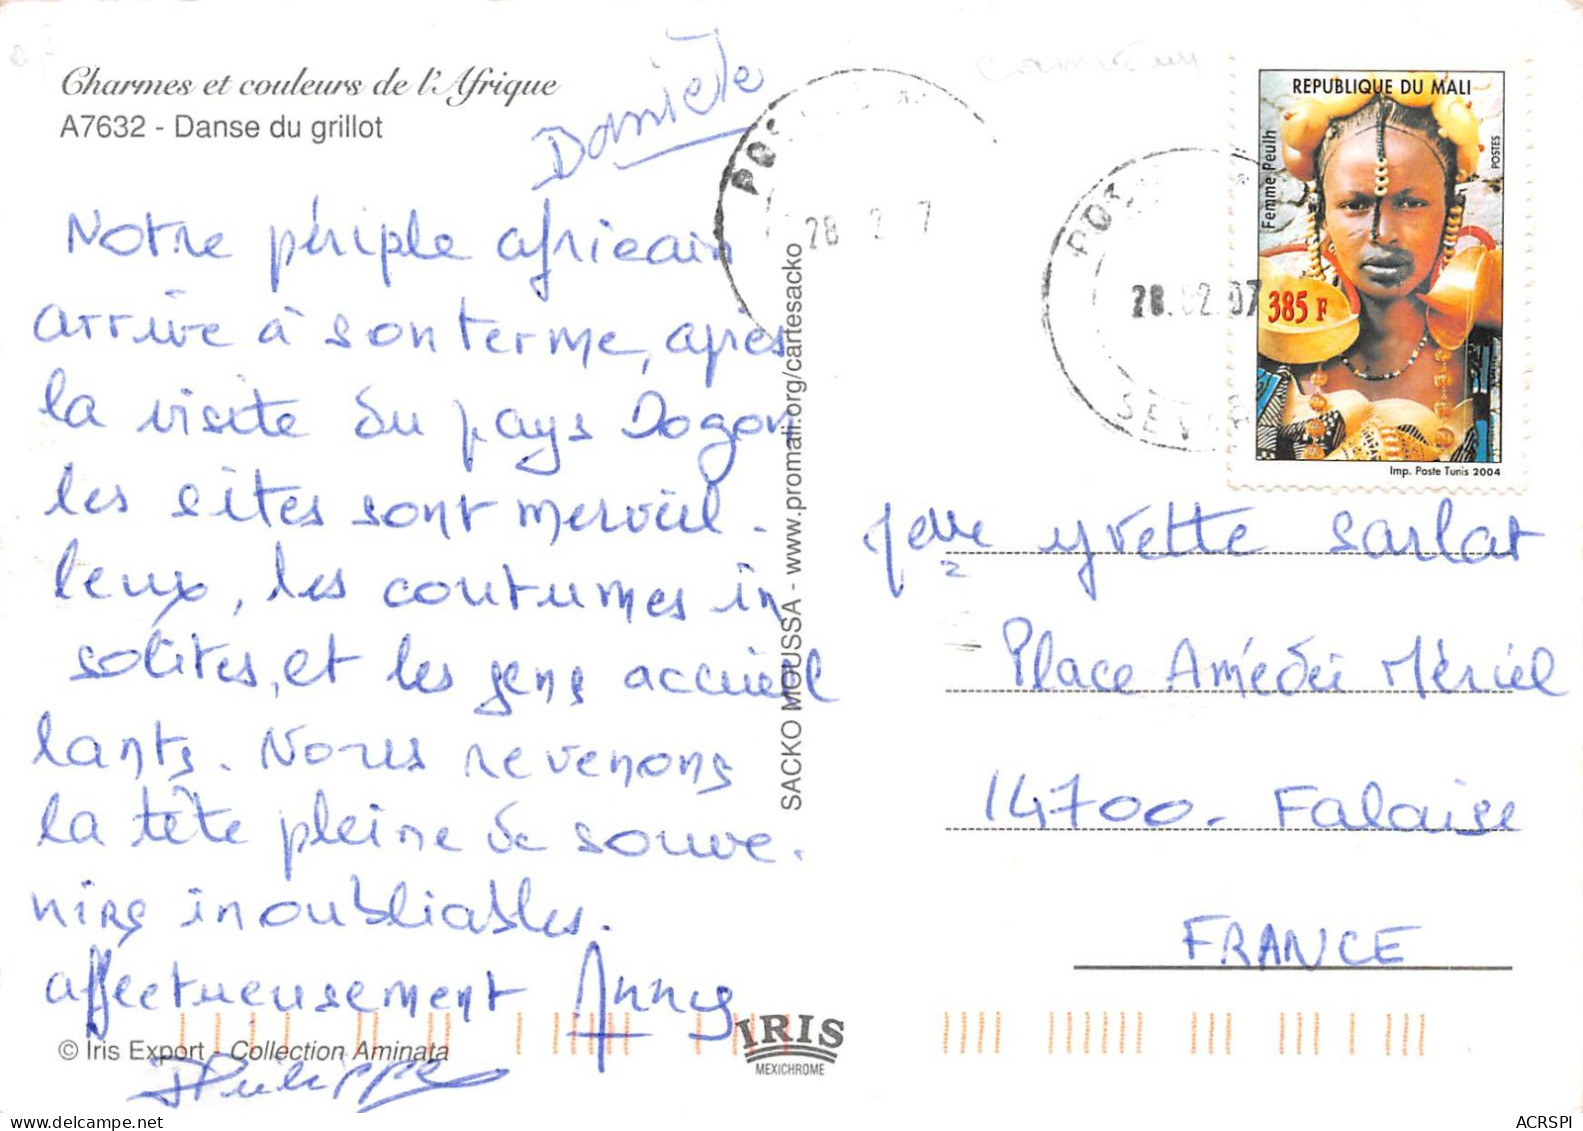 Charmes et couleurs de l'Afrique
A7632 - Danse du grillot
Danièle
Notre périple africain
arrive à son terme, après
la visite du pays Dogon
les sites sont merveil-
leux, les coutumes in
solites, et les gens accueil
lants. Nous revenons
la tête pleine de souve-
nirs inoubliables.
affectueusement
Philippe
© Iris Export - Collection Aminata
SACKO MOUSSA - www.promali.org/cartesacko
IRIS
MEXICHROME
28 2 7
28.02.07
REPUBLIQUE DU MALI
Femme Peulh
POSTES
385 F
Imp. Poste Tunis 2004
yvette Sarlat
Place Amédée Mériel
14700 - Falaise
FRANCE
ACRSPI